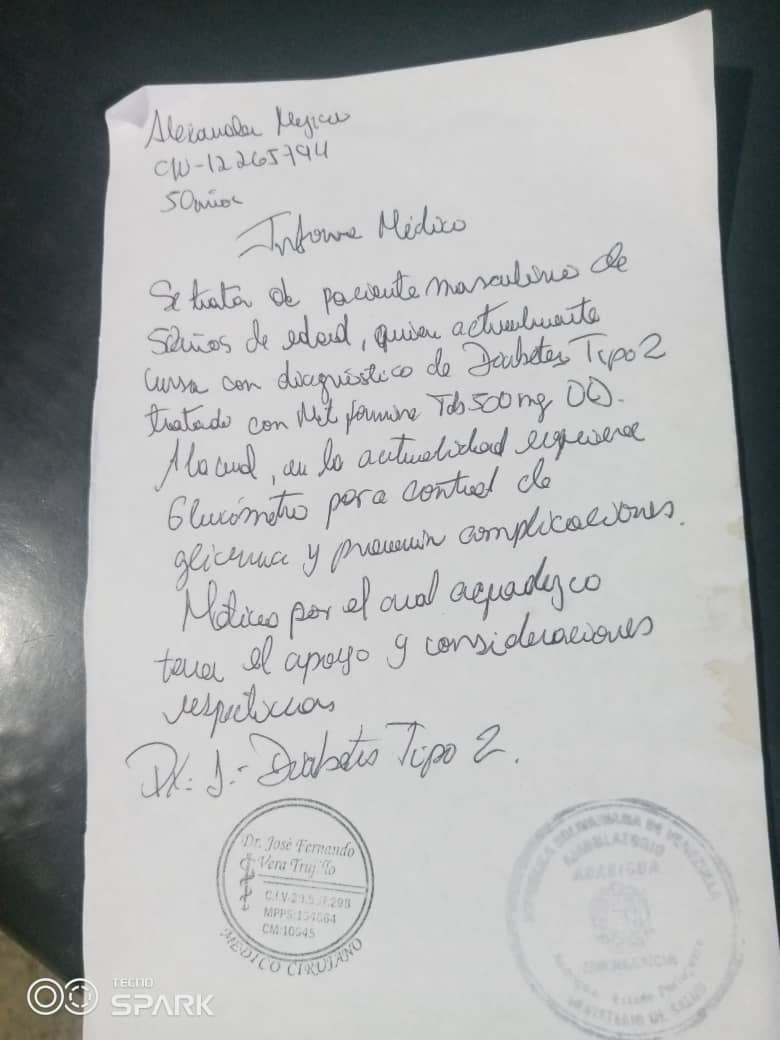 Alexander Mejica
CIV-12265794
50 años
Informe Médico
Se trata de paciente masculino de
50 años de edad, quien actualmente
cursa con diagnóstico de Diabetes Tipo 2
tratado con Metformina Tab 500mg OD.
A la cual, en la actualidad requiere
Glucómetro para control de
glicemia y prevenir complicaciones.
Motivo por el cual agradezco
tener el apoyo y consideraciones
respectivas
DX: 1.- Diabetes Tipo 2.
Dr. José Fernando
Vera Trujillo
MPPS:154664
CM:10545
MEDICO CIRUJANO
REPUBLICA BOLIVARIANA DE VENEZUELA
AMBULATORIO
MINISTERIO DE SALUD
TECNO
SPARK